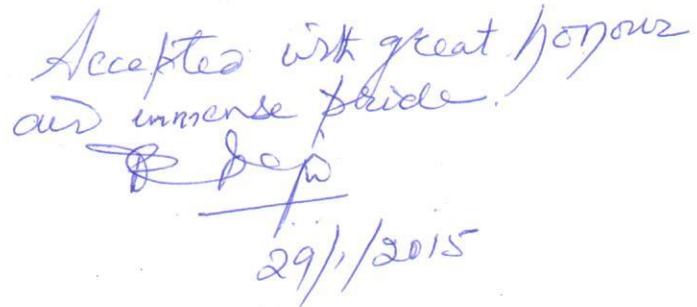 Accepted with great honour
and immense pride.
29/1/2015